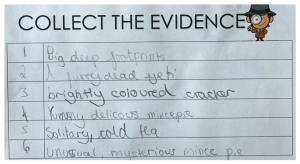 COLLECT THE EVIDENCE
1 Big deep footprints
2 A furry dead yeti
3 brightly coloured cracker
4 Yummy delicous mincepie
5 Solitary, cold tea
6 unusual, mysterious mince pie